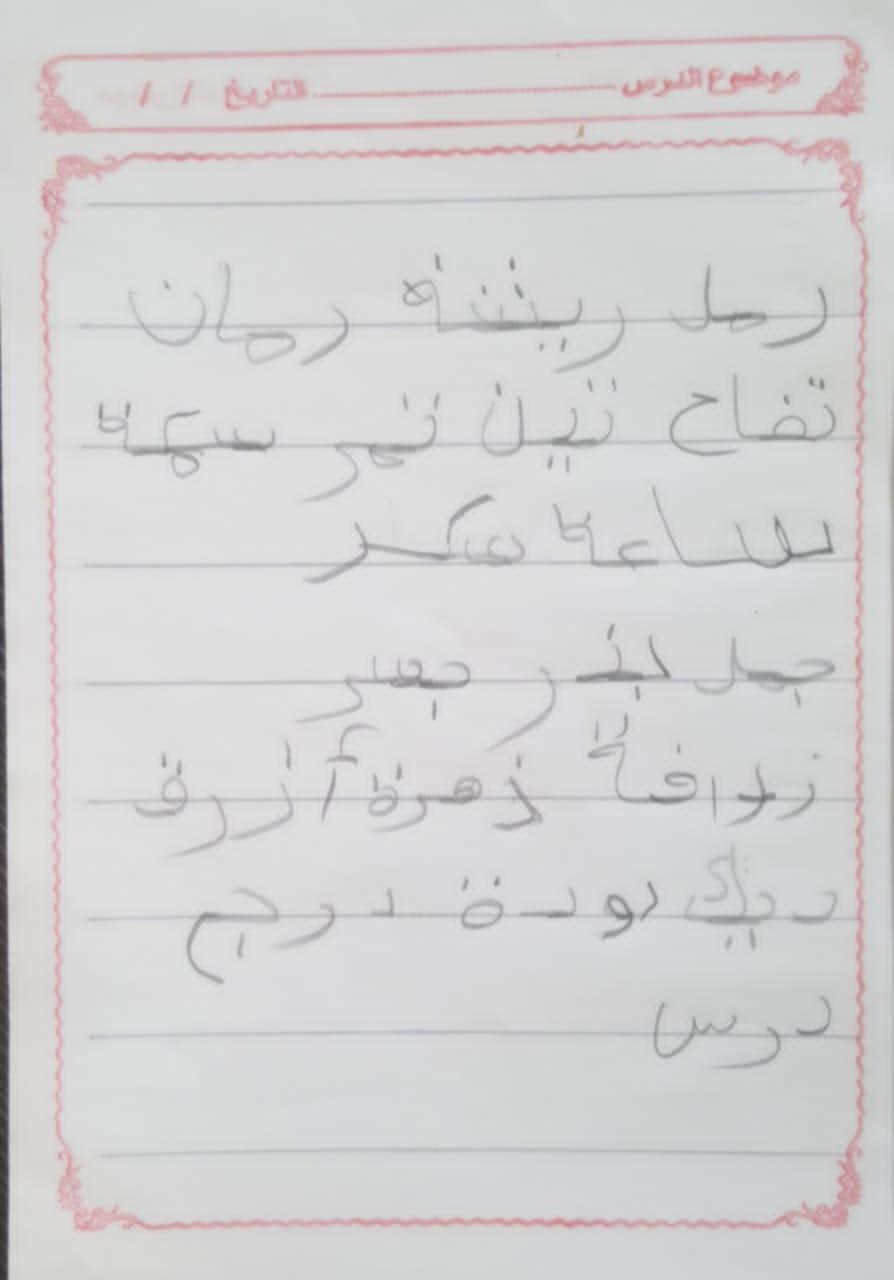 موضوع الدرس ........................ التاريخ / /
رمل ريشة رمان
تفاح تين تمر سمكة
ساعة سكر
جمل جزر جسر
زرافة زهرة أزرق
ديك دودة درج
درس